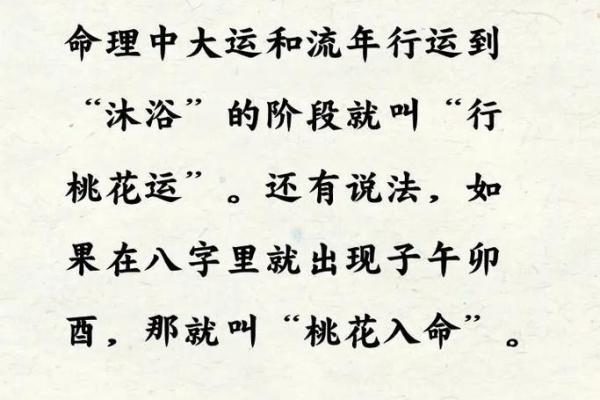 命理中大运和流年行运到
“沐浴”的阶段就叫“行
桃花运”。还有说法，如
果在八字里就出现子午卯
酉，那就叫“桃花入命”。